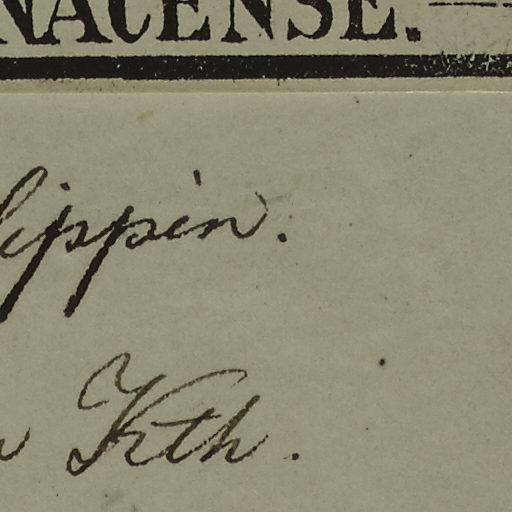 NACENSE. —
lippin.
Kth.